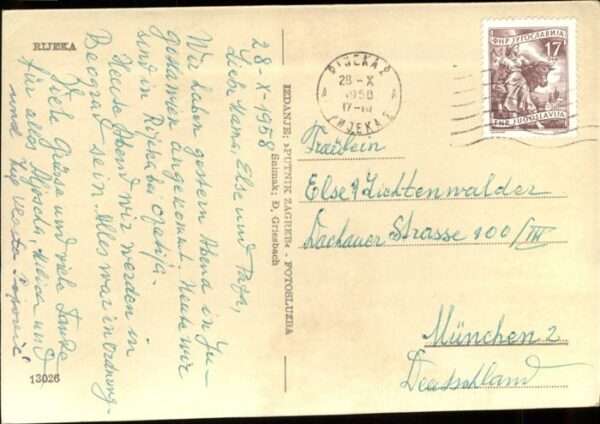 RIJEKA
28-X-1958
Liebe Mama, Else und Papa,
Wir kamen gestern Abend in Ju-
goslawien angekommt. Heute wir
sind in Rijeka bei Opatija.
Heute Abend wir werden in
Beograd sein. Alles war in Ordnung.
Viele Grüsse und viele Danke
für alles Aljoscha, Milica und
und
13026
IZDANJE: »PUTNIK ZAGREB« - FOTOSLUŽBA
Snimak: Đ. Griesbach
RIJEKA 2
28-X
1958
17-18
РИЈЕКА 2
ФНР ЈУГОСЛАВИЈА
17
FNR JUGOSLAVIJA
Fräulein
Else Lichtenwalder
Dachauer Strasse 100/III
München 2
Deutschland